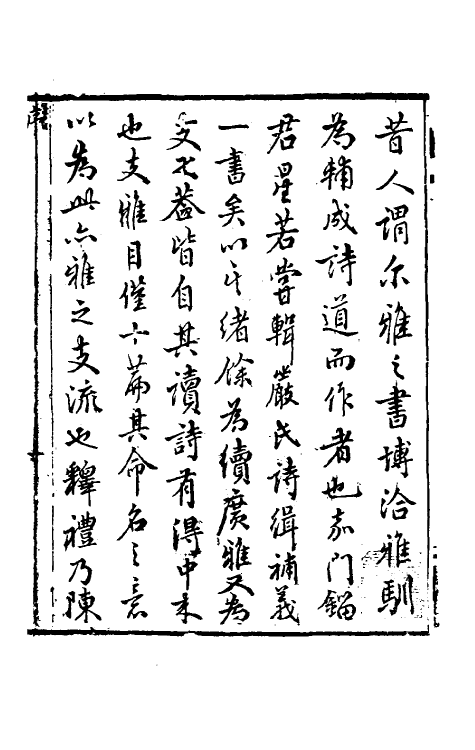 昔人謂尔雅之書博洽雅馴
為輔成詩道而作者也門鎦
君星若嘗輯嚴氏詩緝補義
一書矣以其緒餘為續廣雅又為
支疋蓋皆自其讀詩有得中來
也支雅目僅十篇其命名之意
以為此亦雅之支流也釋禮乃陳